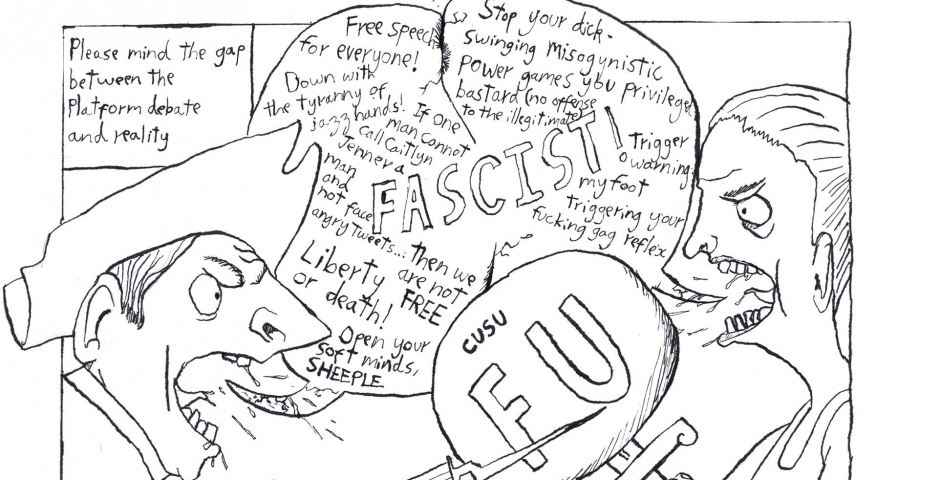 Please mind the gap
between the
Platform debate
and reality
Free speech
for everyone!
Down with
the tyranny of
jazz hands! If one
man cannot
call Caitlyn
Jenner a
man
and
not face
angry Tweets... then we
are not
FREE
Liberty
or death!
Open your
soft minds,
SHEEPLE
FASCIST!
Stop your dick-
swinging misogynistic
power games you privileged
bastard (no offense
to the illegitimate)
Trigger
warning:
my foot
triggering your
fucking gag reflex
CUSU
FU